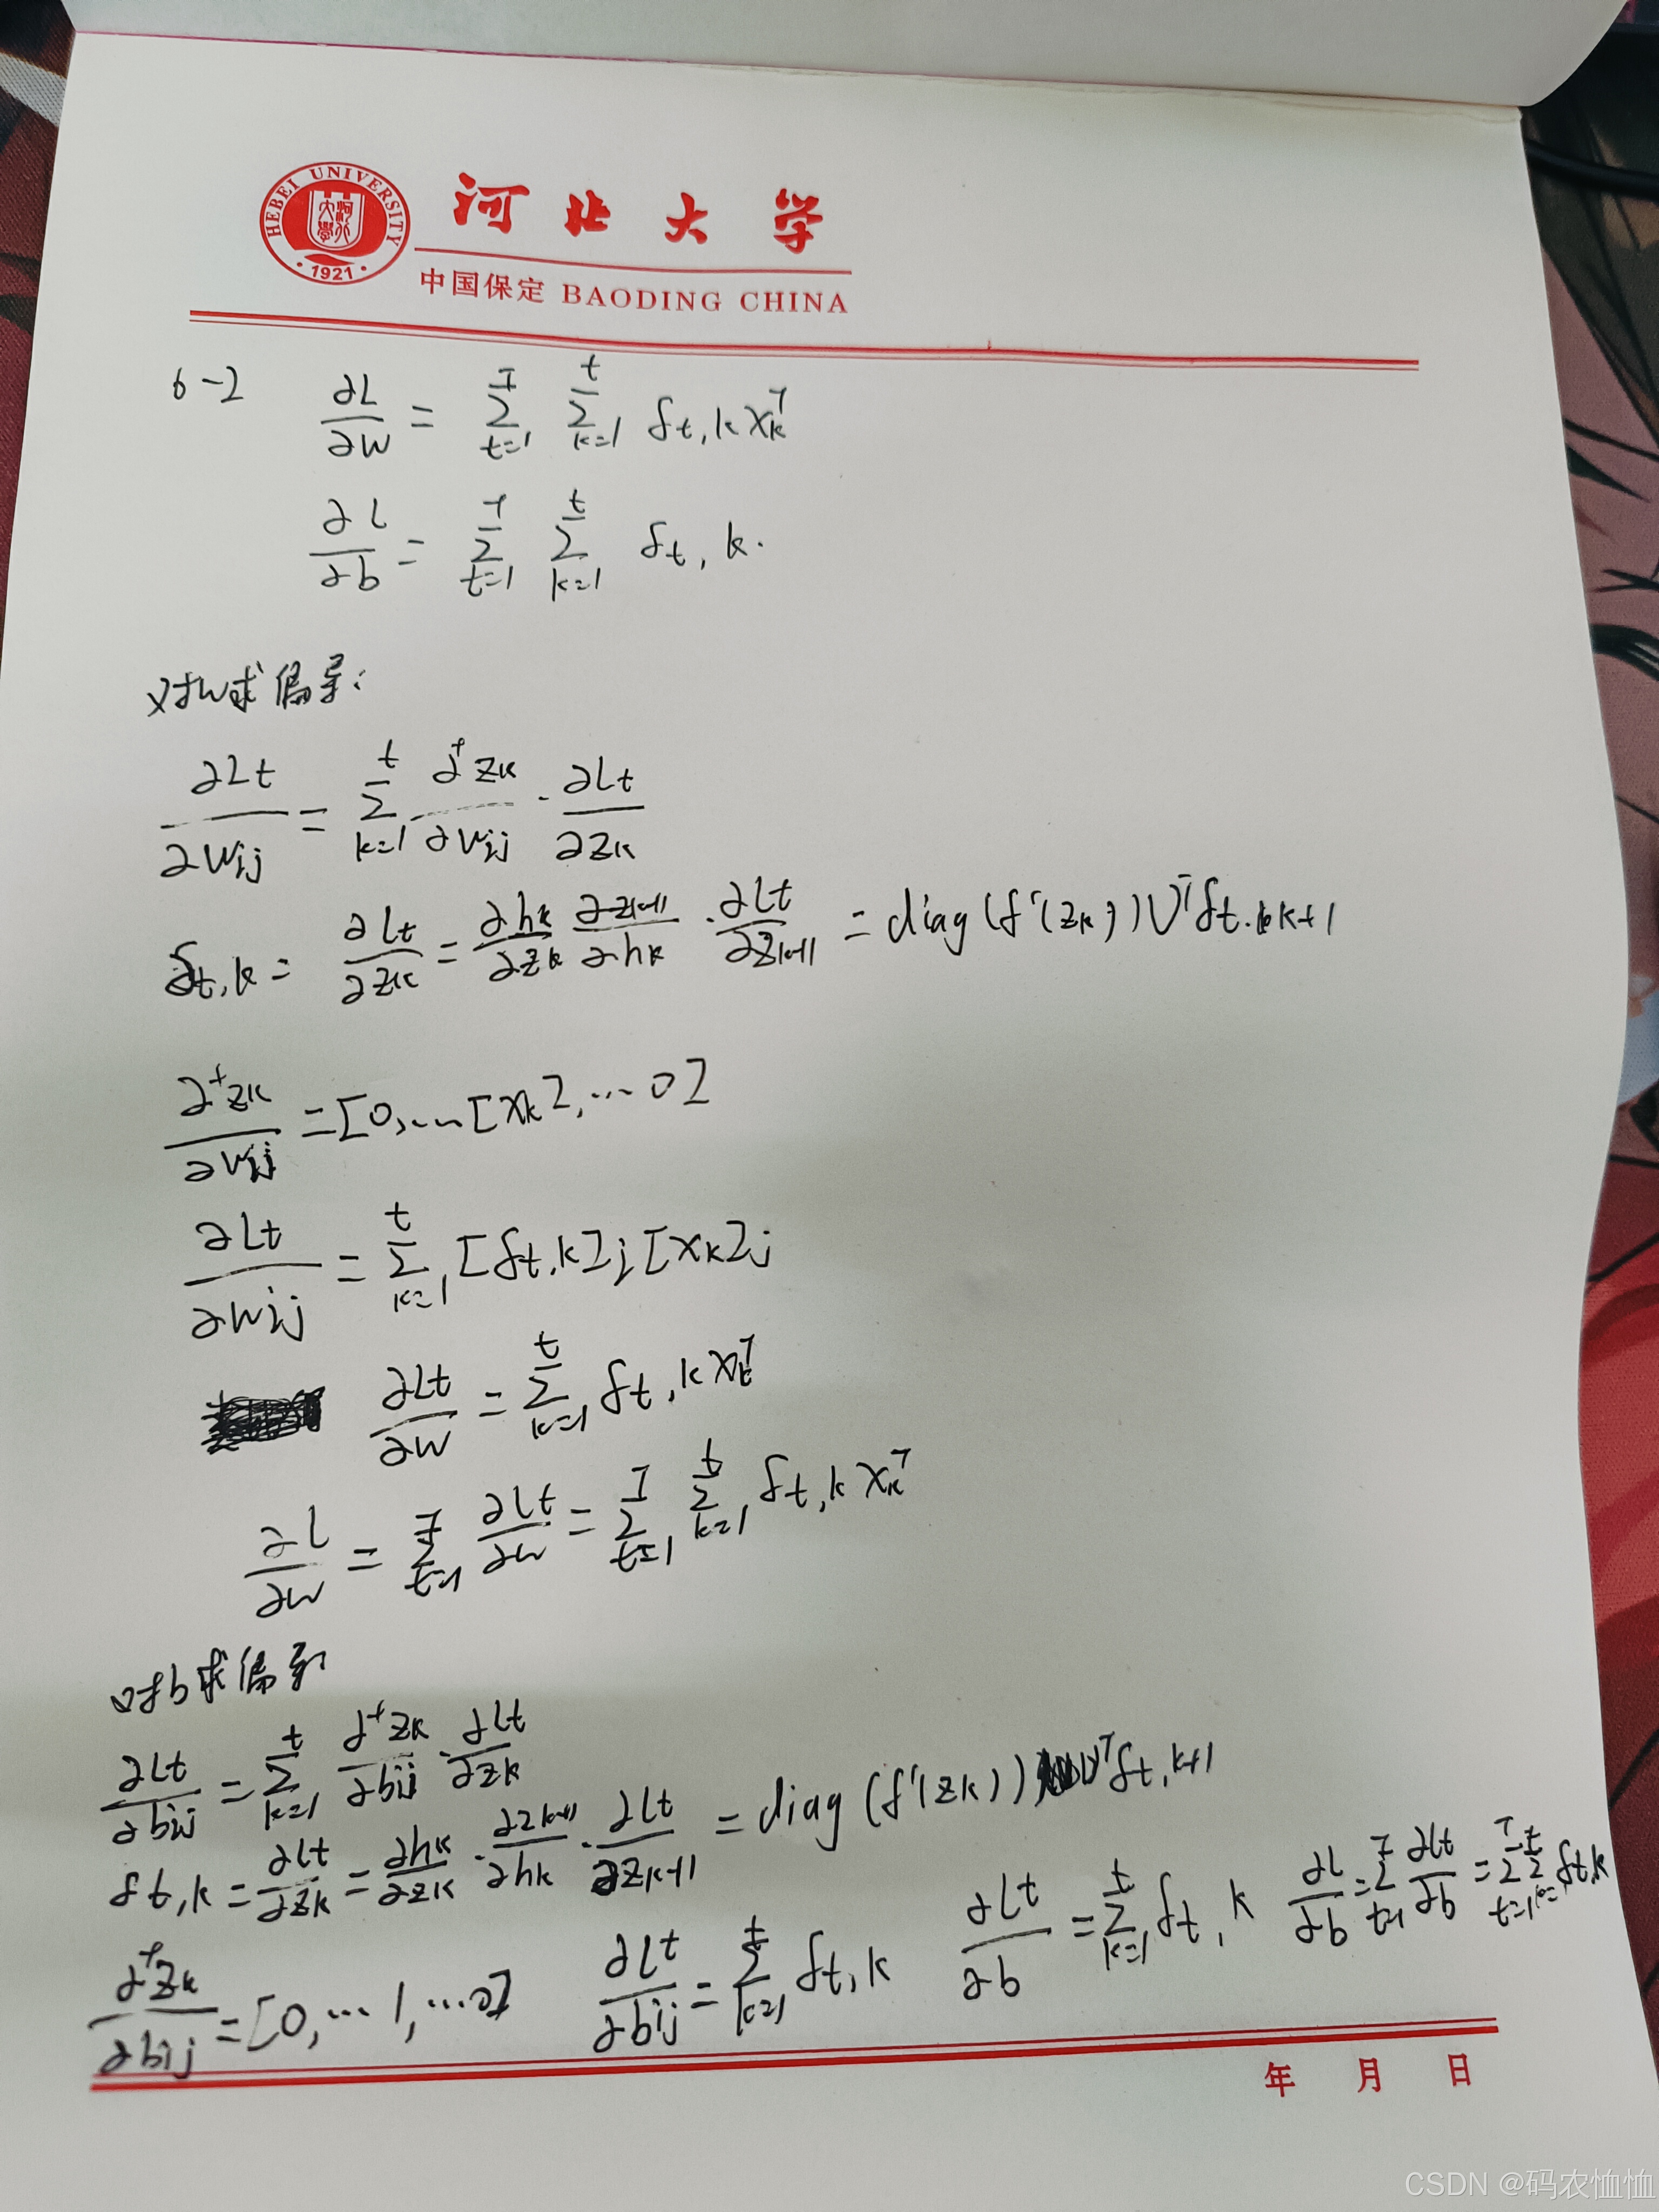 HEBEI UNIVERSITY
河北大學
·1921·
河北大学
中国保定 BAODING CHINA
6-2 ∂L/∂W = Σ_{t=1}^{T} Σ_{k=1}^{t} δt,k Xk^T
∂L/∂b = Σ_{t=1}^{T} Σ_{k=1}^{t} δt,k.
对W求偏导:
∂Lt/∂Wij = Σ_{k=1}^{t} ∂⁺Zk/∂Wij · ∂Lt/∂Zk
δt,k = ∂Lt/∂Zk = ∂hk/∂Zk ∂Zk+1/∂hk · ∂Lt/∂Zk+1 = diag(f'(Zk))U^T δt.k+1
∂⁺Zk/∂Wij = [0,...[Xk],...0]
∂Lt/∂Wij = Σ_{k=1}^{t} [δt,k]i [Xk]j
∂Lt/∂W = Σ_{k=1}^{t} δt,k Xk^T
∂L/∂W = Σ_{t=1}^{T} ∂Lt/∂W = Σ_{t=1}^{T} Σ_{k=1}^{t} δt,k Xk^T
对b求偏导
∂Lt/∂bij = Σ_{k=1}^{t} ∂⁺Zk/∂bij · ∂Lt/∂Zk
δt,k = ∂Lt/∂Zk = ∂hk/∂Zk · ∂Zk+1/∂hk · ∂Lt/∂Zk+1 = diag(f'(Zk))U^T δt,k+1
∂⁺Zk/∂bij = [0,...1,...0] ∂Lt/∂bij = Σ_{k=1}^{t} δt,k ∂Lt/∂b = Σ_{k=1}^{t} δt,k ∂L/∂b = Σ_{t=1}^{T} ∂Lt/∂b = Σ_{t=1}^{T} Σ_{k=1}^{t} δt,k
年 月 日
CSDN @码农恤恤